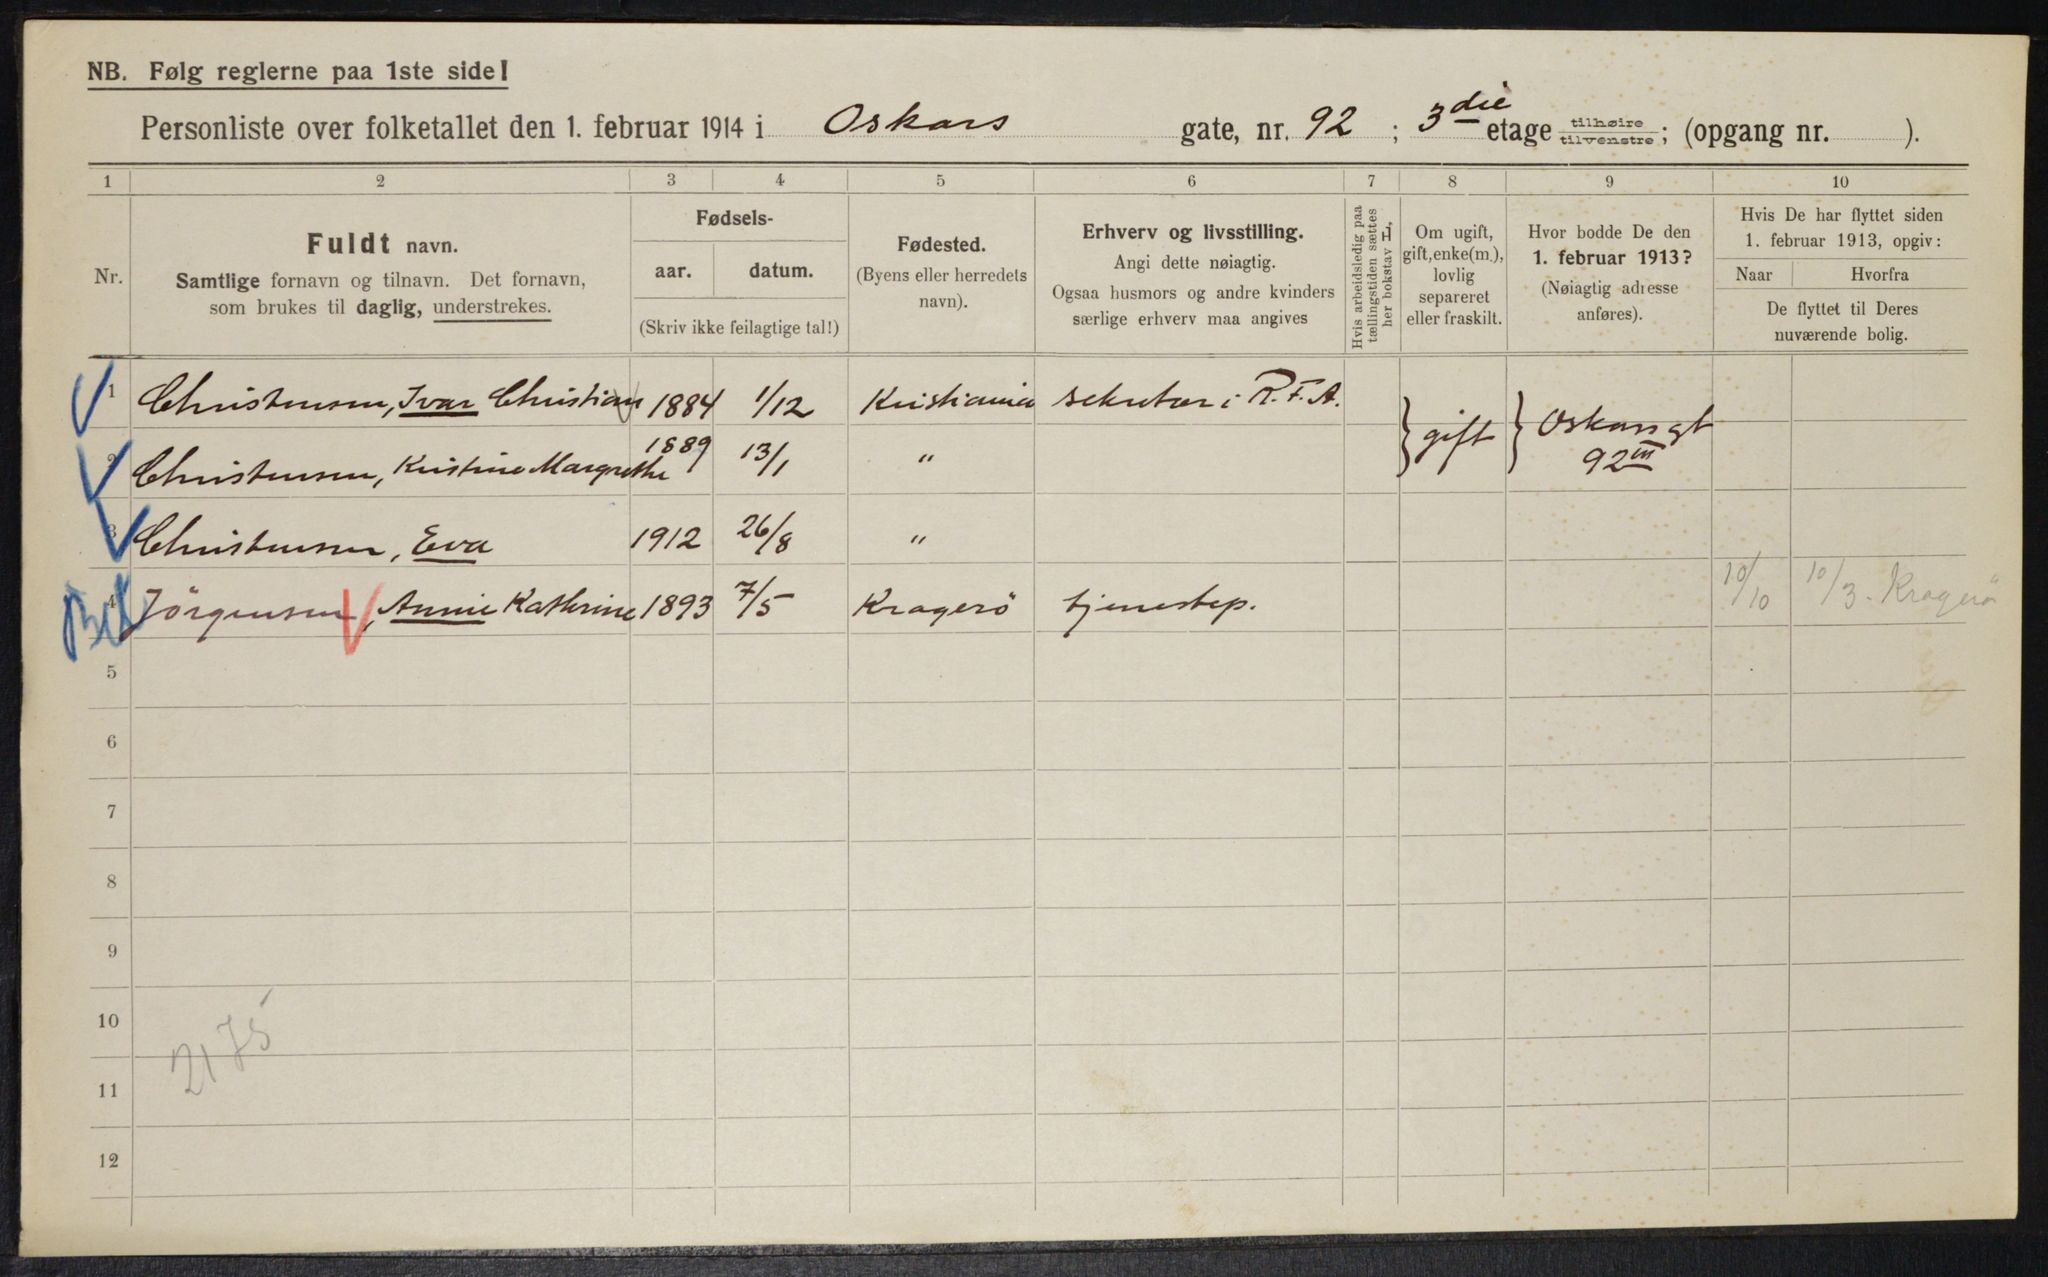 NB. Følg reglerne paa 1ste side!
Personliste over folketallet den 1. februar 1914 i Oskars gate, nr. 92 ; 3die etage tilhøire/tilvenstre; (opgang nr. ).
1 2 3 4 5 6 7 8 9 10
Nr.
Fuldt navn.
Samtlige fornavn og tilnavn. Det fornavn,
som brukes til daglig, understrekes.
Fødsels-
aar. datum.
(Skriv ikke feilagtige tal!)
Fødested.
(Byens eller herredets
navn).
Erhverv og livsstilling.
Angi dette nøiagtig.
Ogsaa husmors og andre kvinders
særlige erhverv maa angives
Hvis arbeidsledig paa
tællingstiden sættes
her bokstav L.
Om ugift,
gift, enke(m.),
lovlig
separeret
eller fraskilt.
Hvor bodde De den
1. februar 1913?
(Nøiagtig adresse
anføres).
Hvis De har flyttet siden
1. februar 1913, opgiv:
Naar Hvorfra
De flyttet til Deres
nuværende bolig.
1 Christensen, Ivar Christian 1884 1/12 Kristiania sekretær i R.F.A. } gift } Oskarsgt
92 III
2 Christensen, Kristine Margrethe 1889 13/1 "
3 Christensen, Eva 1912 26/8 "
4 Jörgensen, Annie Kathrine 1893 7/5 Kragerö tjenestep. 10/10 10/3. Kragerö
5
6
7
8
9
10
2175
11
12